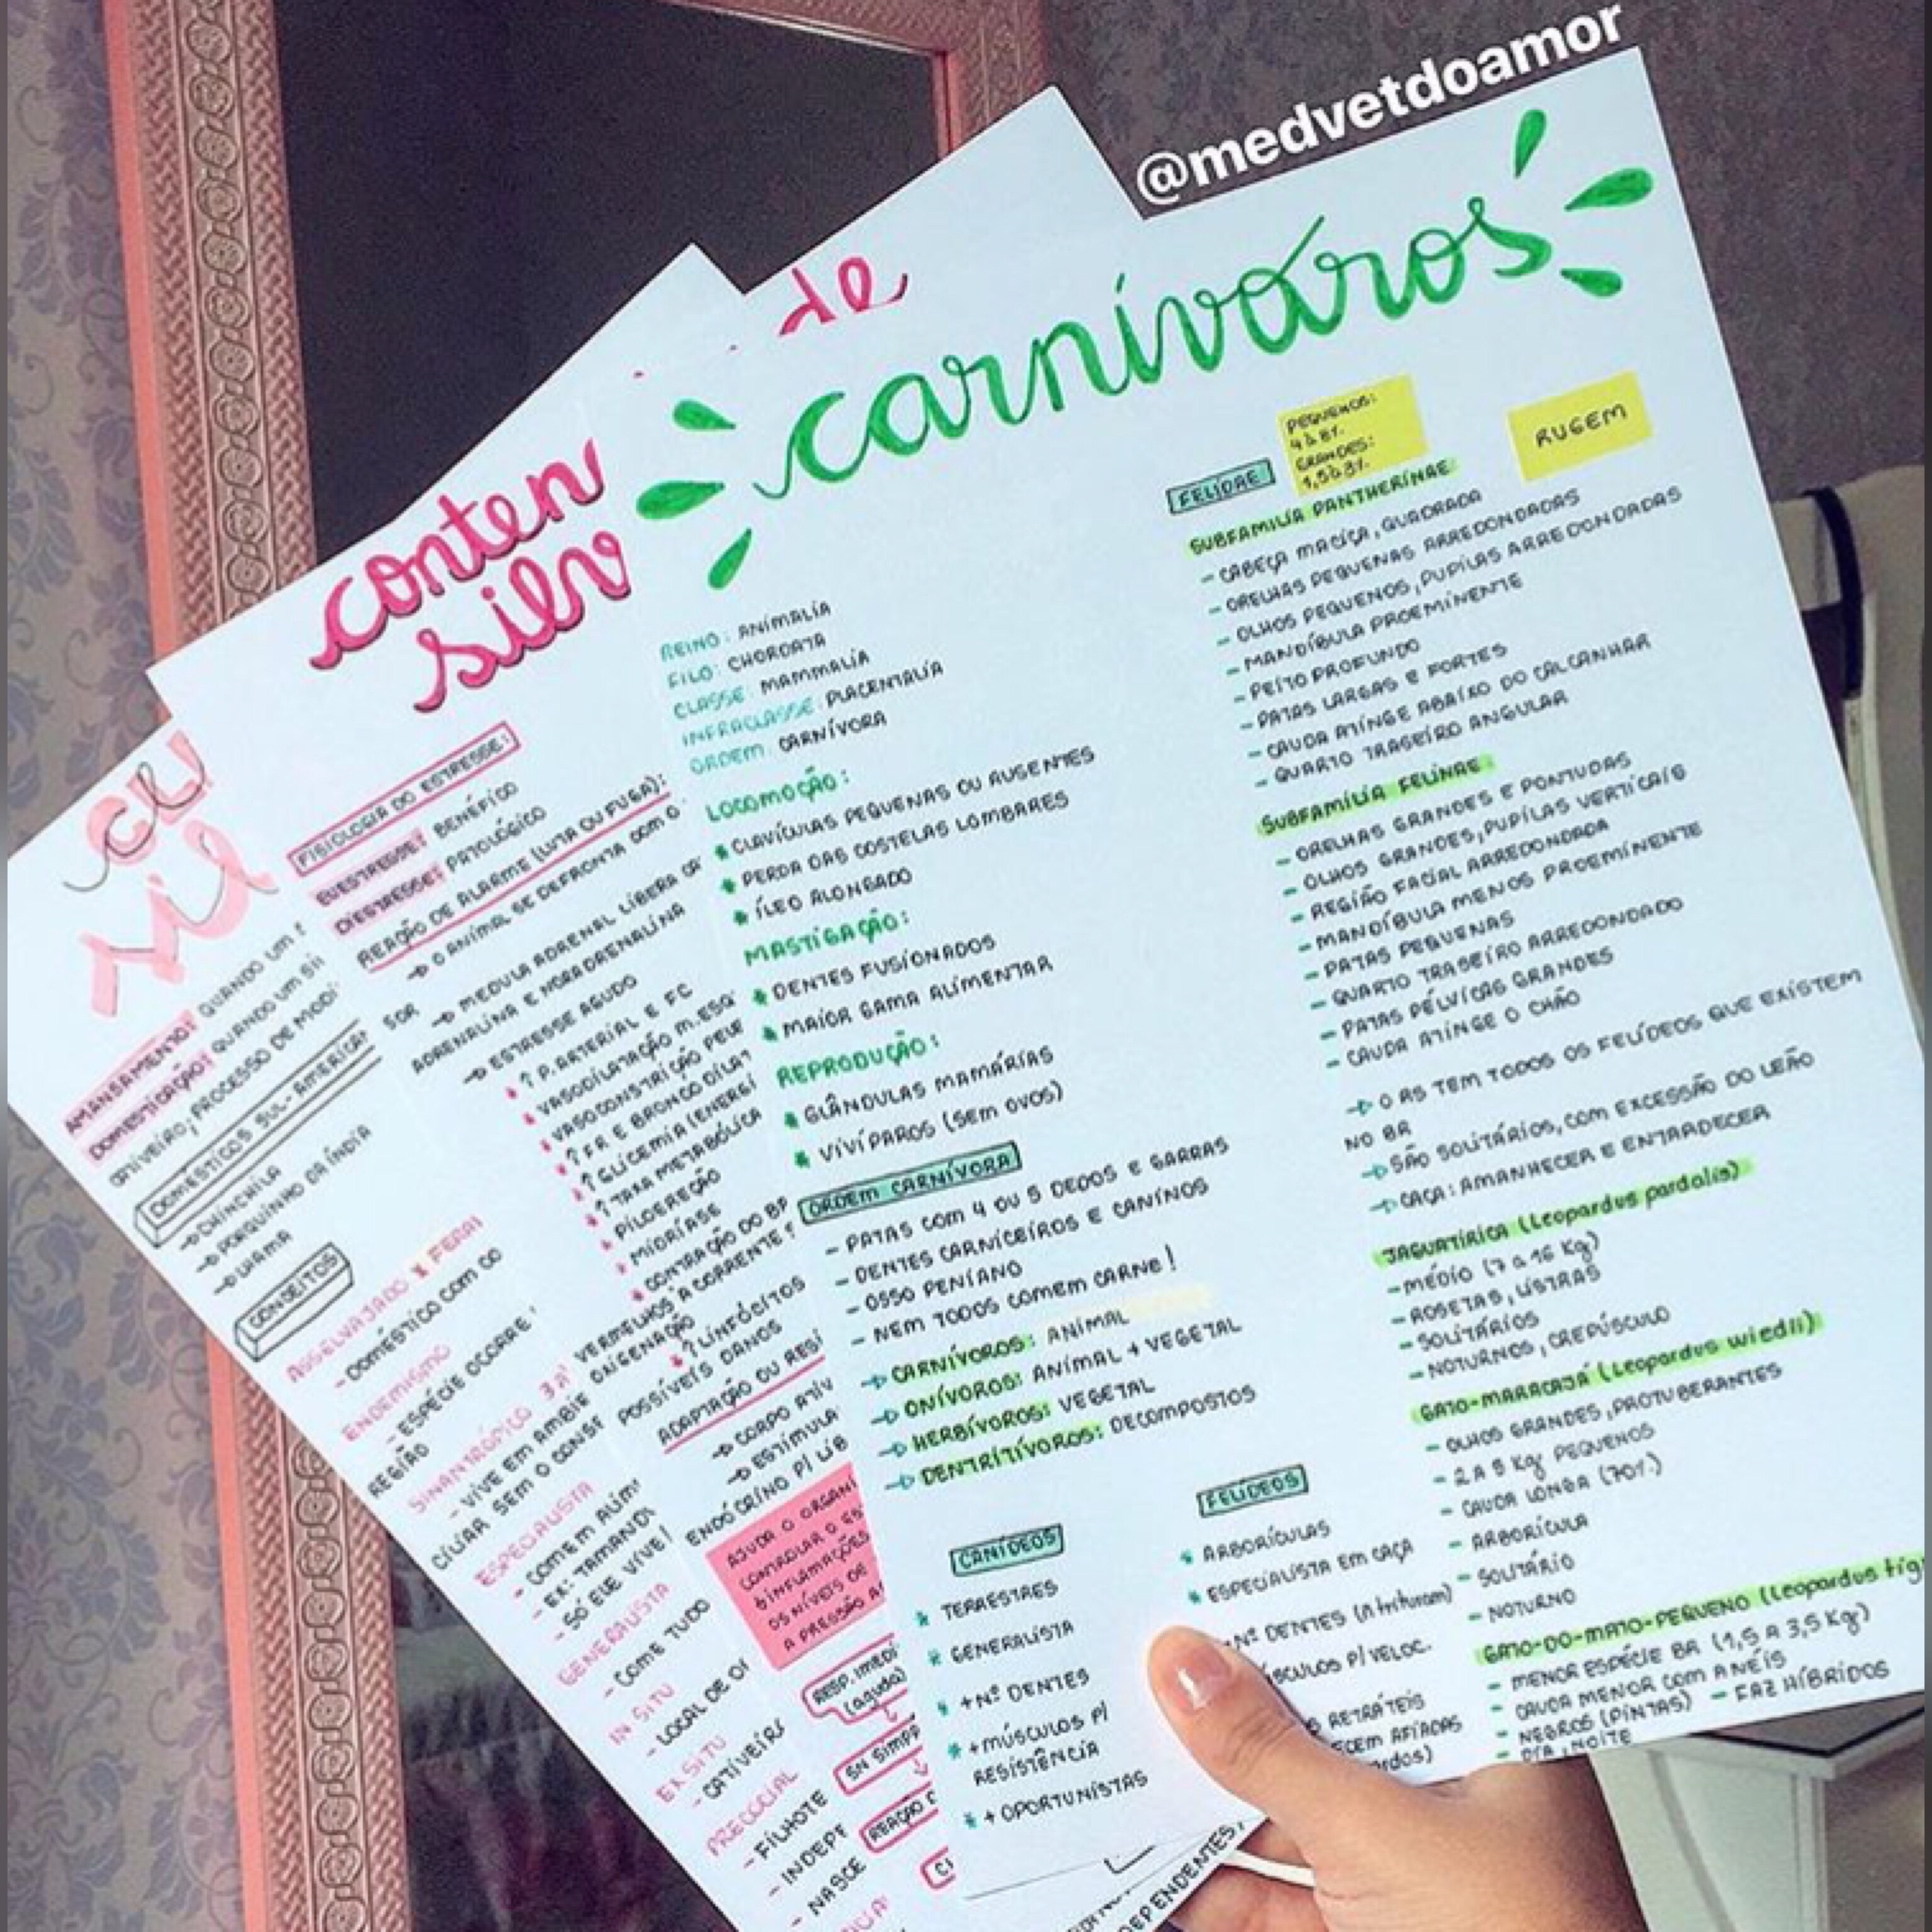 @medvetdoamor
de
carnívoros
REINO: ANIMALÍA
FILO: CHORDATA
CLASSE: MAMMALÍA
INFRACLASSE: PLACENTALÍA
ORDEM: CARNÍVORA
LOCOMOÇÃO:
* CLAVÍCULAS PEQUENAS OU AUSENTES
* PERDA DAS COSTELAS LOMBARES
* ÍLEO ALONGADO
MASTIGAÇÃO:
* DENTES FUSÍONADOS
* MAÍOR GAMA ALÍMENTAR
REPRODUÇÃO:
* GLÂNDULAS MAMÁRÍAS
* VÍVÍPAROS (SEM OVOS)
ORDEM CARNÍVORA
- PATAS COM 4 OU 5 DEDOS E GARRAS
- DENTES CARNÍCEÍROS E CANÍNOS
- OSSO PENÍANO
- NEM TODOS COMEM CARNE!
→ CARNÍVOROS: ANÍMAL
→ ONÍVOROS: ANÍMAL + VEGETAL
→ HERBÍVOROS: VEGETAL
→ DENTRÍTÍVOROS: DECOMPOSTOS
CANÍDEOS
* TERRESTRES
* GENERALÍSTA
* + Nº DENTES
* + MÚSCULOS P/
RESÍSTÊNCÍA
* + OPORTUNÍSTAS
FELÍDEOS
* ARBORÍCULAS
* ESPECÍALÍSTA EM CAÇA
- Nº DENTES (Ñ trituram)
MÚSCULOS P/ VELOC.
RETRÁTEÍS
AFÍADAS
FELÍDAE
PEQUENOS:
4 à 8%
GRANDES:
1,5 à 3%
RUGEM
SUBFAMÍLÍA PANTHERÍNAE:
- CABEÇA MACÍÇA, QUADRADA
- ORELHAS PEQUENAS ARREDONDADAS
- OLHOS PEQUENOS, PUPÍLAS ARREDONDADAS
- MANDÍBULA PROEMÍNENTE
- PEÍTO PROFUNDO
- PATAS LARGAS E FORTES
- CAUDA ATÍNGE ABAÍXO DO CALCANHAR
- QUARTO TRASEÍRO ANGULAR
SUBFAMÍLÍA FELÍNAE:
- ORELHAS GRANDES E PONTUDAS
- OLHOS GRANDES, PUPÍLAS VERTÍCAÍS
- REGÍÃO FACÍAL ARREDONDADA
- MANDÍBULA MENOS PROEMÍNENTE
- PATAS PEQUENAS
- QUARTO TRASEÍRO ARREDONDADO
- PATAS PÉLVÍCAS GRANDES
- CAUDA ATÍNGE O CHÃO
→ O RS TEM TODOS OS FELÍDEOS QUE EXÍSTEM
NO BR
→ SÃO SOLÍTÁRÍOS, COM EXCESSÃO DO LEÃO
→ CAÇA: AMANHECER E ENTARDECER
JAGUATÍRÍCA (Leopardus pardalis)
- MÉDÍO (7 a 16 Kg)
- ROSETAS, LÍSTRAS
- SOLÍTÁRÍOS
- NOTURNOS, CREPÚSCULO
GATO-MARACAJÁ (Leopardus wiedii)
- OLHOS GRANDES, PROTUBERANTES
- 2 A 5 Kg PEQUENOS
- CAUDA LONGA (70%)
- ARBORÍCULA
- SOLÍTÁRÍO
- NOTURNO
GATO-DO-MATO-PEQUENO (Leopardus tig
- MENOR ESPÉCÍE BR (1,5 A 3,5 Kg)
- CAUDA MENOR COM ANÉÍS
- NEGROS (PÍNTAS) - FAZ HÍBRÍDOS
- DÍA, NOÍTE
conten
silv
FISIOLOGIA DO ESTRESSE:
EUESTRESSE: BENÉFÍCO
DIESTRESSE: PATOLÓGÍCO
REAÇÃO DE ALARME (LUTA OU FUGA):
→ O ANÍMAL SE DEFRONTA COM O
SOR
→ MEDULA ADRENAL LÍBERA
ADRENALÍNA E NORADRENALÍNA
→ ESTRESSE AGUDO
↑ P. ARTERÍAL E FC
VASODÍLATAÇÃO M. ESQ
VASOCONSTRÍÇÃO PELE
↑ FR E BRONCODÍLAT
↑ GLÍCEMÍA (ENERGÍ
↑ TAXA METABÓLÍCA
PÍLOEREÇÃO
MÍDRÍASE
CONTRAÇÃO DO
VERMELHOS À CORRENTE
OXÍGENAÇÃO
↑ LÍNFÓCÍTOS
POSSÍVEÍS DANOS
ADAPTAÇÃO OU RESÍ
→ CORPO ATÍV
→ ESTÍMULA
ENDÓCRÍNO P/ LÍB
AJUDA O ORGANÍ
CONTROLAR O ES
INFLAMAÇÕES
OS NÍVEÍS DE
A PRESSÃO A
RESP. IMEDÍ
(aguda)
SN SÍMP
REAÇÃO D
AMANSAMENTO: QUANDO UM
DOMESTICAÇÃO: QUANDO UM
CATÍVEÍRO, PROCESSO DE MODÍ
DOMÉSTÍCOS SUL-AMERÍCAN
→ CHÍNCHÍLA
→ PORQUÍNHO DA ÍNDÍA
→ LHAMA
CONCEÍTOS
ASSELVAJADO X FERAL
- DOMÉSTÍCO COM
ENDEMÍSMO
- ESPÉCÍE OCORRE
REGÍÃO
SÍNANTRÓPÍCO
- VÍVE EM AMBÍE
CÍLÍAR SEM O CONSE
ESPECÍALÍSTA
- COMEM ALÍM
- EX: TAMANDU
- SÓ ELE VÍVE
GENERALÍSTA
- COME TUDO
IN SÍTU
- LOCAL DE OR
EX SÍTU
- CATÍVEÍR
PRECOCÍAL
- FÍLHOTE
- INDEP
- NASCE
DEPENDENTES,